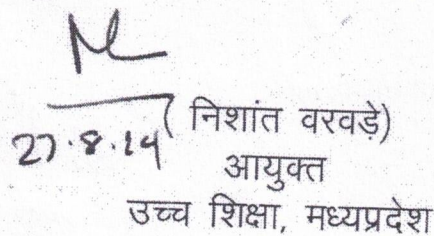 27.8.24
(निशांत वरवड़े)
आयुक्त
उच्च शिक्षा, मध्यप्रदेश